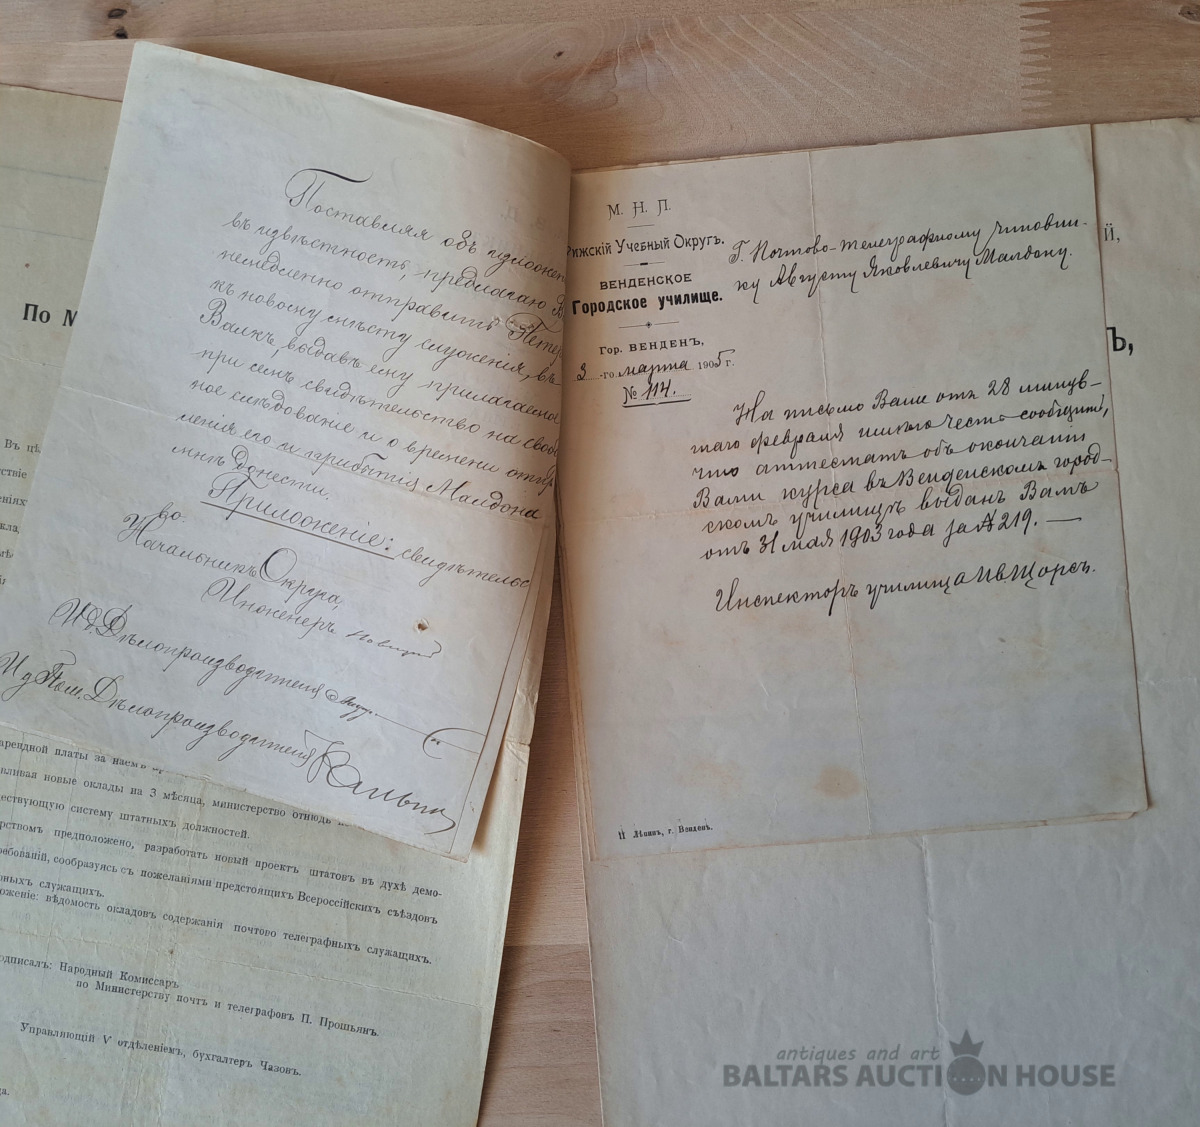 Поставляя объ изложен
въ извѣстность, предлагаю В
немедленно отправить Петер
къ новому мѣсту служенія, въ
Валкъ, выдавъ ему прилагаемое
при семъ свидѣтельство на своб
ное слѣдованіе и о времени отпр
ленія его и прибытія Малдона
мнѣ донести.
Приложеніе: свидѣтельс
Начальникъ Округа,
Инженеръ
И д Дѣлопроизводителя
И д Пом. Дѣлопроизводителя
М. Н. П.
Рижскій Учебный Округъ.
ВЕНДЕНСКОЕ
Городское училище.
Гор. ВЕНДЕНЪ,
3 -го марта 1905 г.
№ 114.
Г. Почтово-телеграфному чиновни-
ку Августу Яковлевичу Малдону.
На письмо Ваше отъ 28 минув-
шаго февраля имѣю честь сообщить,
что аттестатъ объ окончаніи
Вами курса въ Венденскомъ город-
скомъ училищѣ выданъ Вамъ
отъ 31 мая 1903 года за № 219. —
Инспекторъ училища
г. Венденъ.
й,
ъ,
По М
Въ цѣ
ствіе
еніях
кла,
арендной платы за наемъ
вливая новые оклады на 3 мѣсяца, министерство отнюдь
ествующую систему штатныхъ должностей.
рствомъ предположено, разработать новый проектъ штатовъ въ духѣ демо-
ребованій, сообразуясь съ пожеланіями предстоящихъ Всероссійскихъ съѣздовъ
ныхъ служащихъ.
ожение: вѣдомость окладовъ содержанія почтово телеграфныхъ служащихъ.
одписалъ: Народный Комиссаръ
по Министерству почтъ и телеграфовъ П. Прошьянъ.
Управляющій V отдѣленіемъ, бухгалтеръ Чазовъ.
да.
antiques and art
BALTARS AUCTION HOUSE